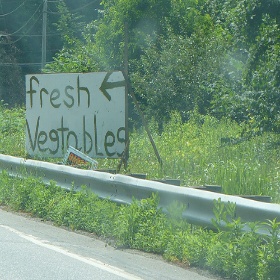 fresh
Vegtables